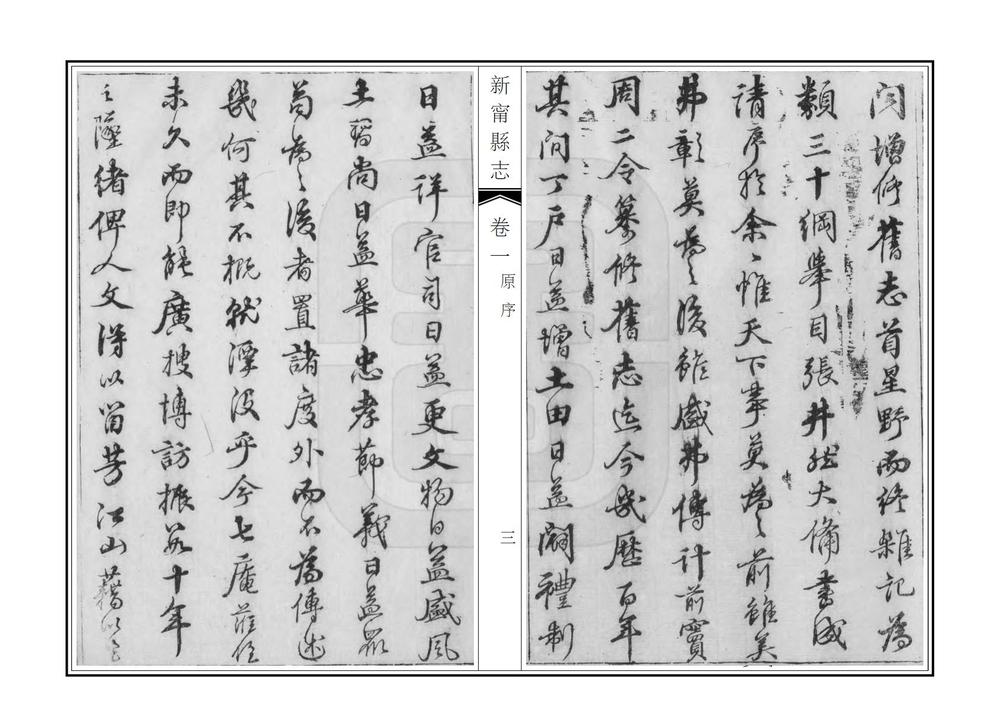 閱增修舊志首星野而終雜記爲
類三十綱舉目張井然大備書成
請序於余余惟天下事莫爲之前雖美
弗彰莫爲之後雖盛弗傳計前竇
周二令纂修舊志迄今幾歷百年
其间丁戶日益增土田日益闢禮制
新甯縣志
卷一
原序
三
日益詳官司日益更文物日益盛風
土習尚日益華忠孝節義日益眾
苟爲之後者置諸度外而不爲傳述
幾何其不概就湮没乎今七菴蒞任
未久而即能廣搜博訪振數十年
之墜緒俾人文得以留芳江山藉以